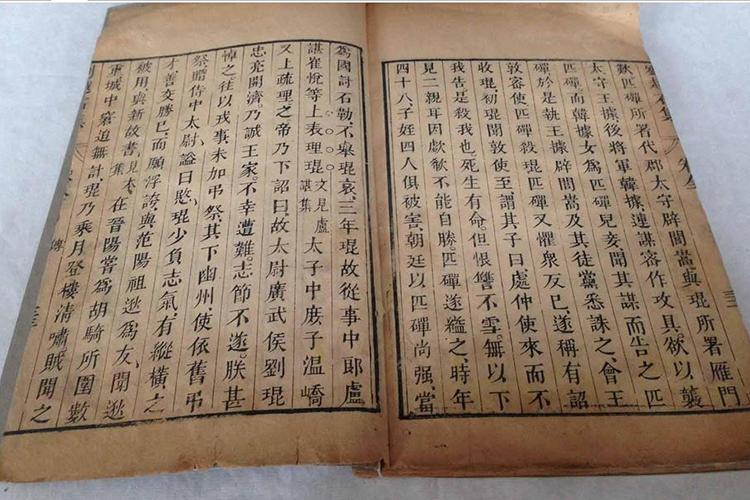 歎匹磾所署代郡太守辟閭嵩與琨所署雁門
太守王據後將軍韓據連謀密作攻具欲以襲
匹磾而韓據女為匹磾兒妾聞其謀而告之匹
磾於是執王據辟閭嵩及其徒黨悉誅之會王
敦密使匹磾殺琨匹磾又懼衆反己遂稱有詔
收琨初琨聞敦使至謂其子曰處仲使來而不
我告是殺我也死生有命但恨讐不雪無以下
見二親耳因歔欷不能自勝匹磾遂縊之時年
四十八子姪四人俱被害朝廷以匹磾尚强當
為國討石勒不舉琨哀三年琨故從事中郎盧
諶崔悅等上表理琨文見盧諶集太子中庶子温嶠
又上疏理之帝乃下詔曰故太尉廣武侯劉琨
忠亮開濟乃誠王家不幸遭難志節不遂朕甚
悼之往以戎事未加弔祭其下幽州使依舊弔
祭贈侍中太尉諡曰愍琨少負志氣有縱橫之
才善交勝己而頗浮誇與范陽祖逖為友聞逖
被用與親故書見本集在晉陽嘗為胡騎所圍數
重城中窘迫無計琨乃乘月登樓清嘯賊聞之